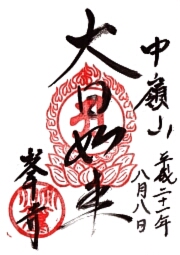 中嶺山
平成二十一年
八月八日
大日如来
峯寺